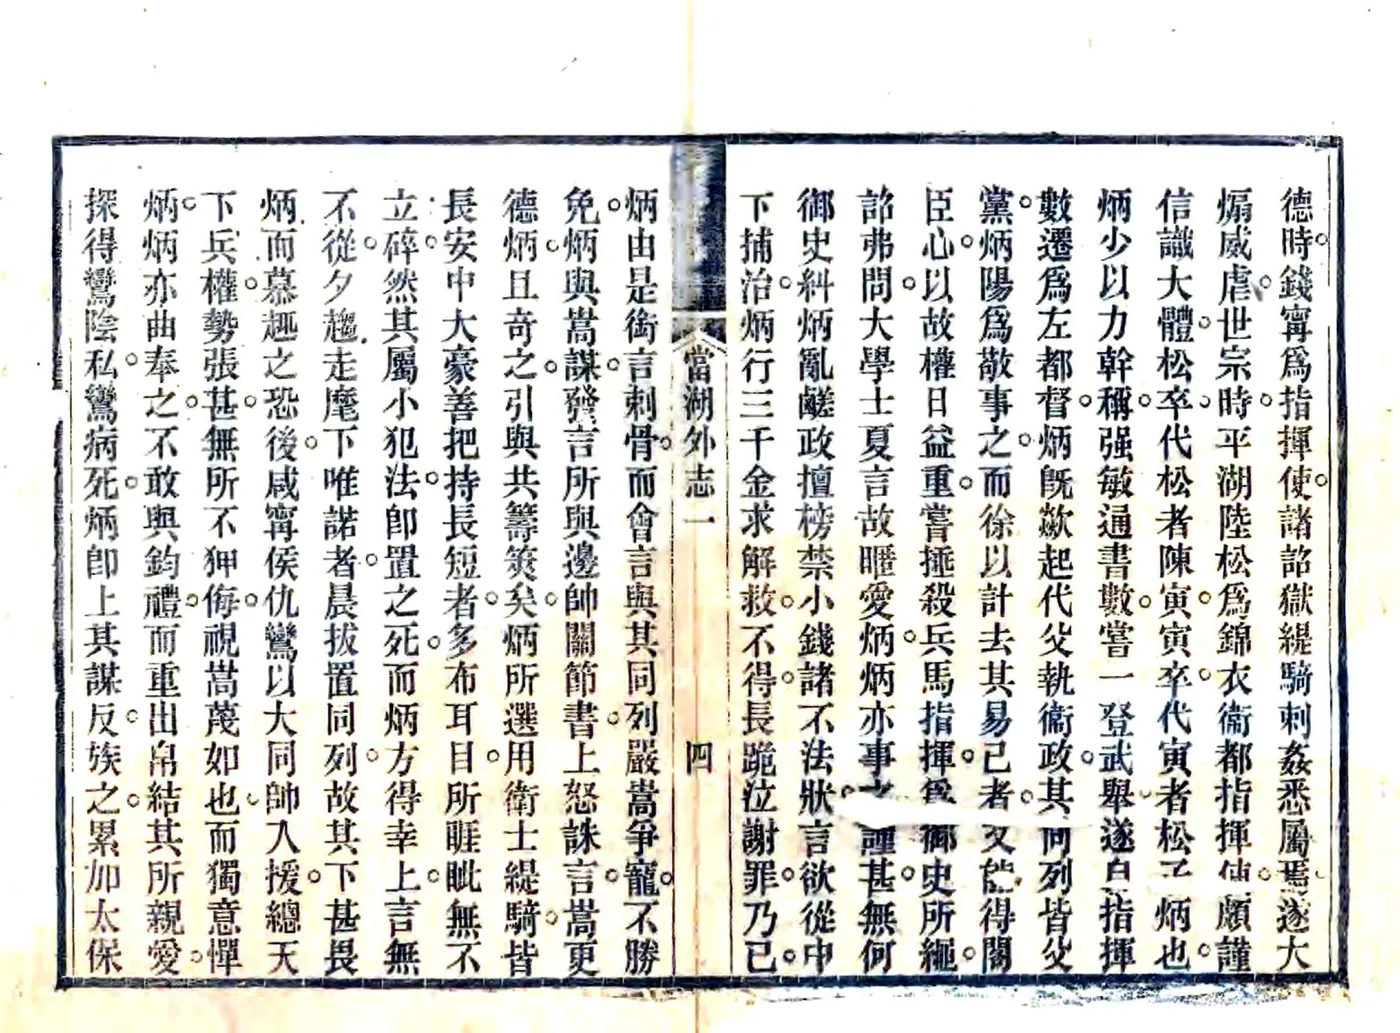 德時錢寧爲指揮使諸詔獄緹騎刺姦悉屬焉遂大
煽威虐世宗時平湖陸松爲錦衣衞都指揮使頗謹
信識大體松卒代松者陳寅寅卒代寅者松子炳也
炳少以力幹稱强敏通書數嘗一登武舉遂自指揮
數遷爲左都督炳旣歘起代父執衞政其同列皆父
黨炳陽爲敬事之而徐以計去其易己者又能得閣
臣心以故權日益重嘗捶殺兵馬指揮爲御史所繩
詔弗問大學士夏言故暱愛炳炳亦事之謹甚無何
御史糾炳亂鹺政擅榜禁小錢諸不法狀言欲從中
下捕治炳行三千金求解救不得長跪泣謝罪乃已
當湖外志一
四
炳由是銜言刺骨而會言與其同列嚴嵩爭寵不勝
免炳與嵩謀發言所與邊帥關節書上怒誅言嵩更
德炳且奇之引與共籌筴矣炳所選用衛士緹騎皆
長安中大豪善把持長短者多布耳目所睚眦無不
立碎然其屬小犯法卽置之死而炳方得幸上言無
不從夕趨走麾下唯諾者晨拔置同列故其下甚畏
炳而慕趣之恐後咸寧侯仇鸞以大同帥入援總天
下兵權勢張甚無所不狎侮視嵩蔑如也而獨意憚
炳炳亦曲奉之不敢與鈞禮而重出帛結其所親愛
探得鸞陰私鸞病死炳卽上其謀反族之累加太保